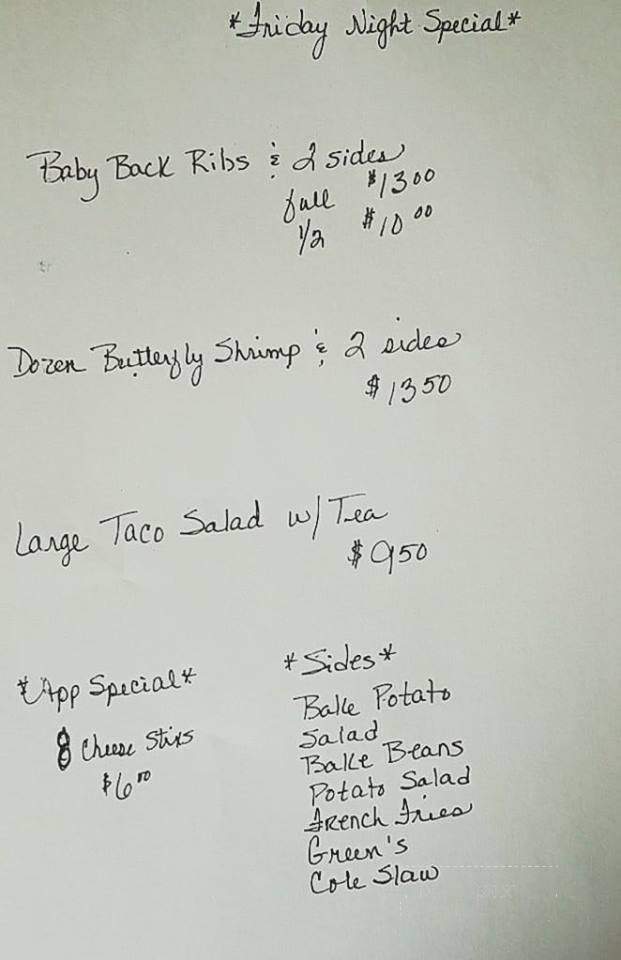 *Friday Night Special*
Baby Back Ribs & 2 sides
full $1300
1/2 $10 00
Dozen Butterfly Shrimp & 2 sides
$1350
Large Taco Salad w/ Tea
$950
*App Special*
8 Cheese Stixs
$600
*Sides*
Bake Potato
Salad
Bake Beans
Potato Salad
French Fries
Green's
Cole Slaw